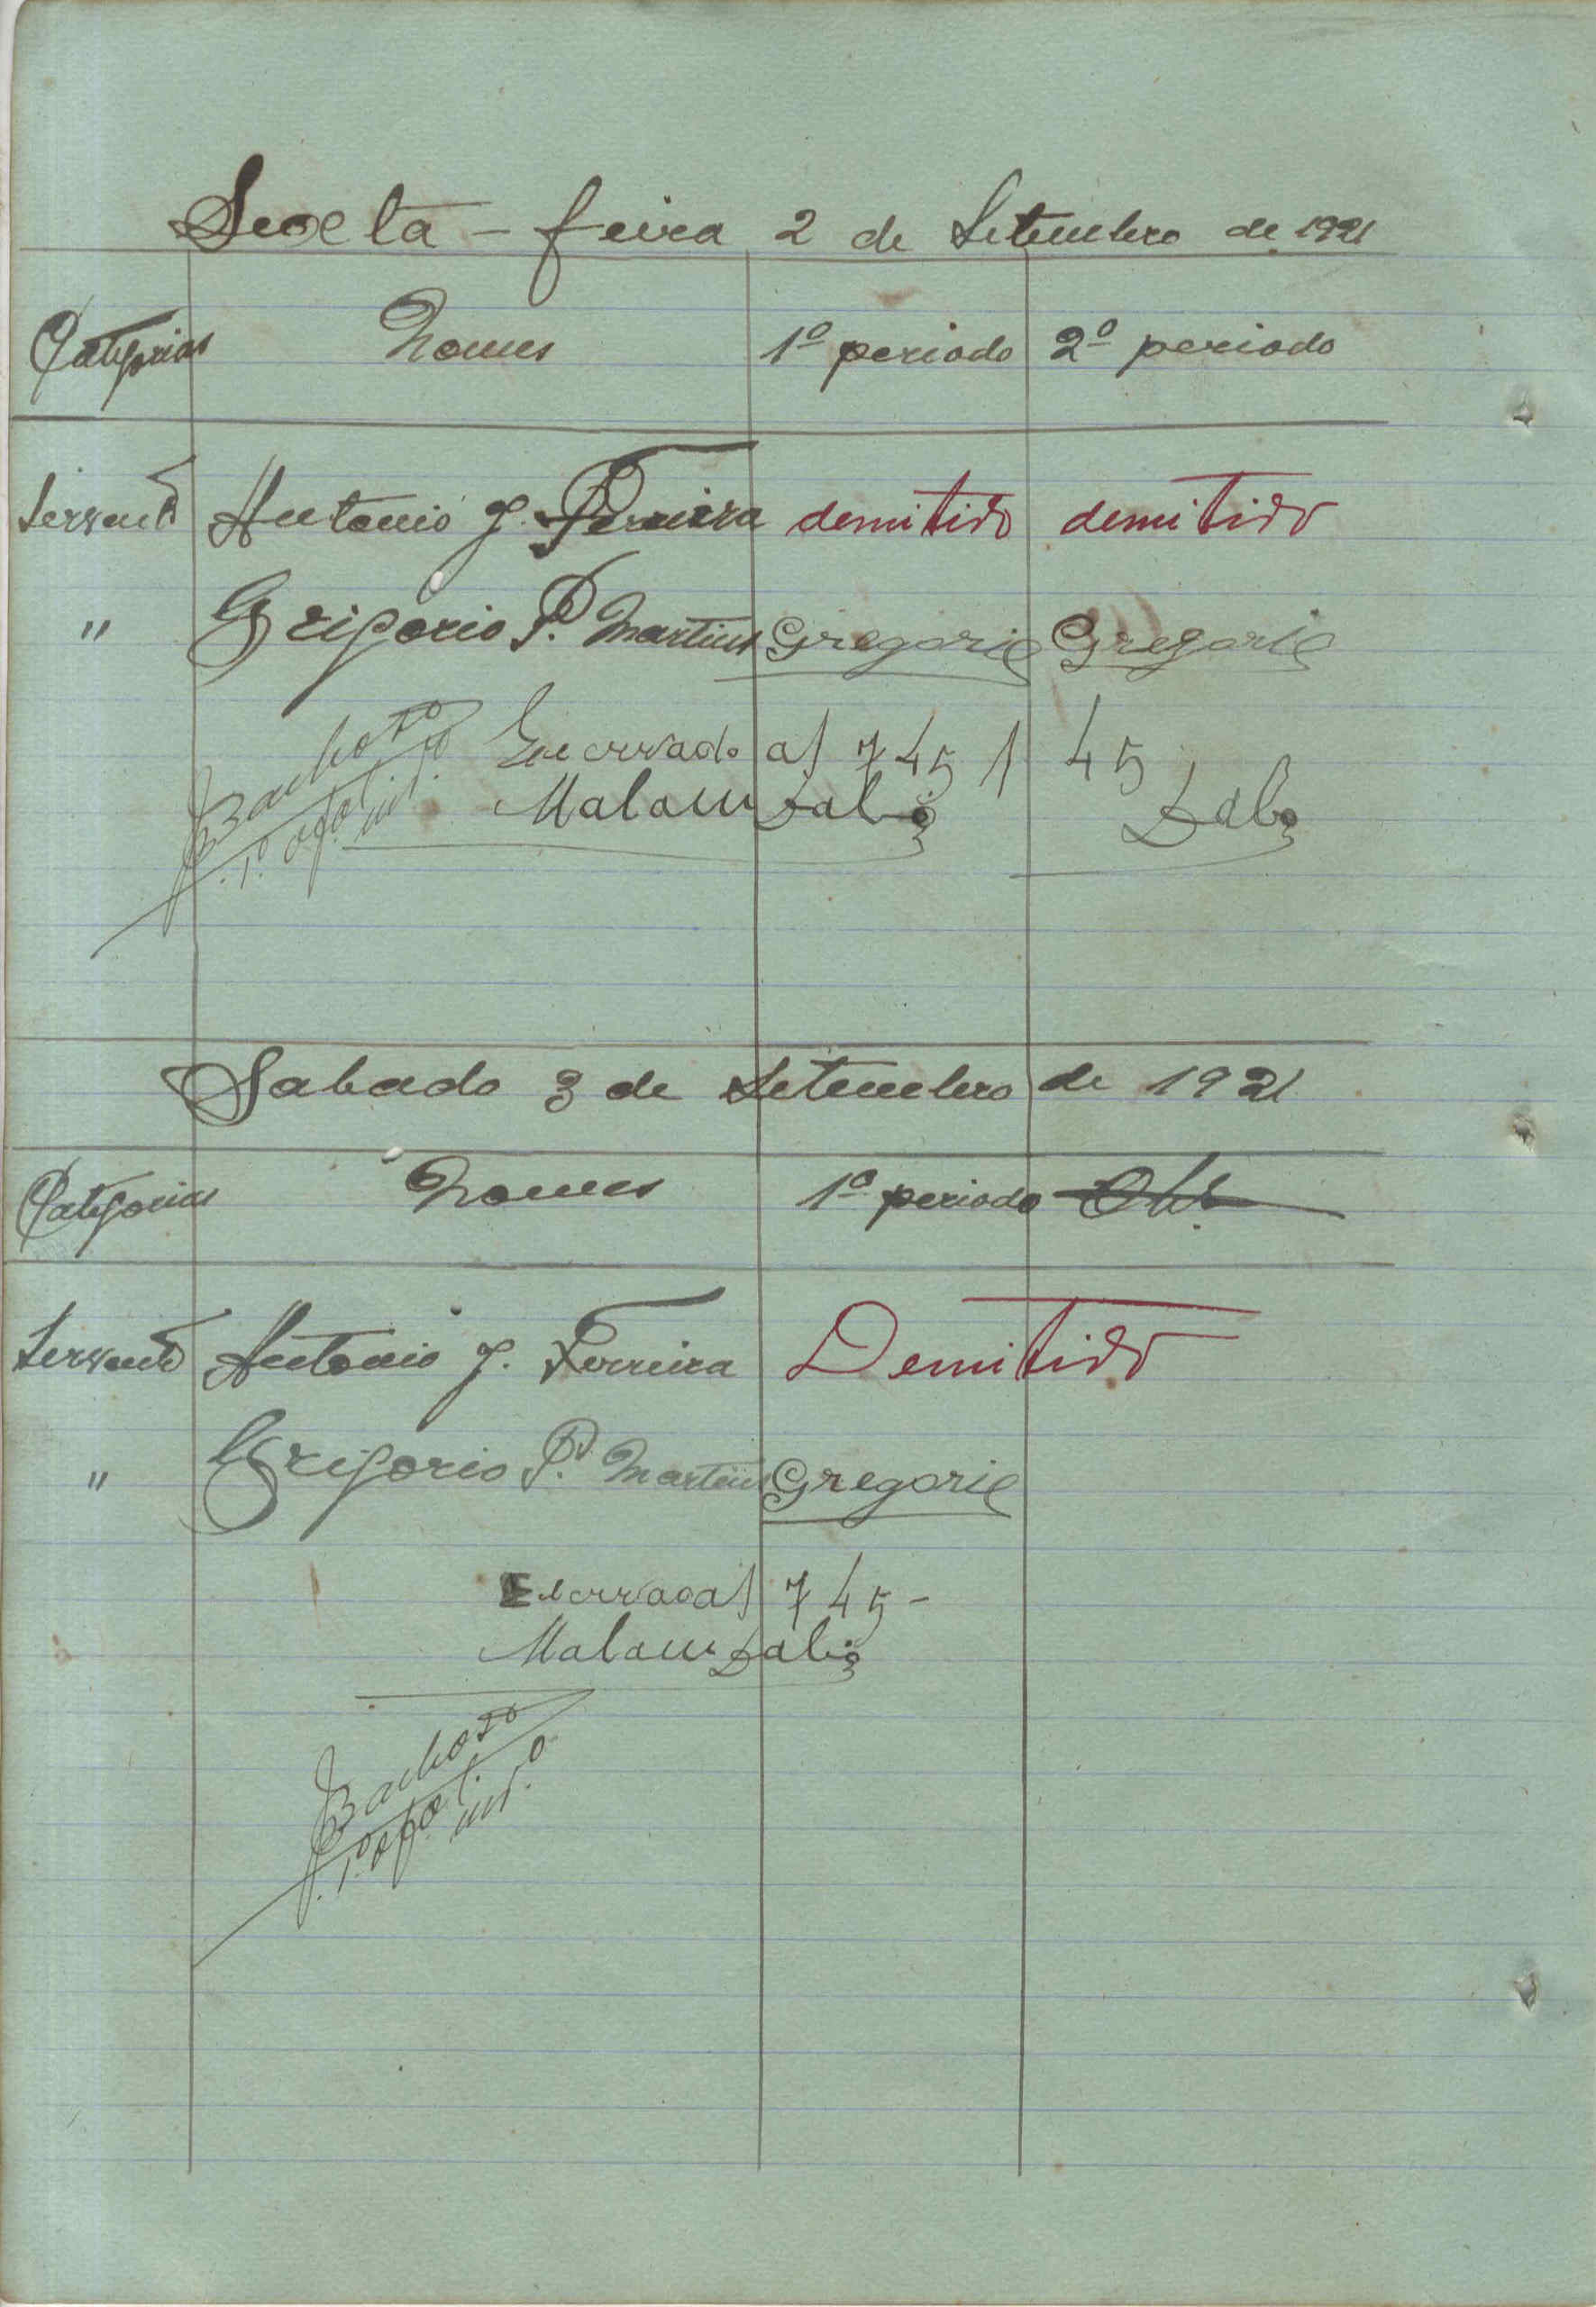 Sexta-feira 2 de Setembro de 1921
Categorias Nomes 1º periodo 2º periodo
Servente Antonio J. Ferreira demitido demitido
" Grigorio P. Martins Gregorio Gregorio
Encerrado as 7 45 1 45
Malam Dabo Dabo
Barboso
1º
Sabado 3 de Setembro de 1921
Categorias Nomes 1º periodo Obs.
Servente Antonio J. Ferreira Demitido
" Grigorio P. Martins Gregorio
Encerrado as 7 45 -
Malam Dabo
Barboso
1º